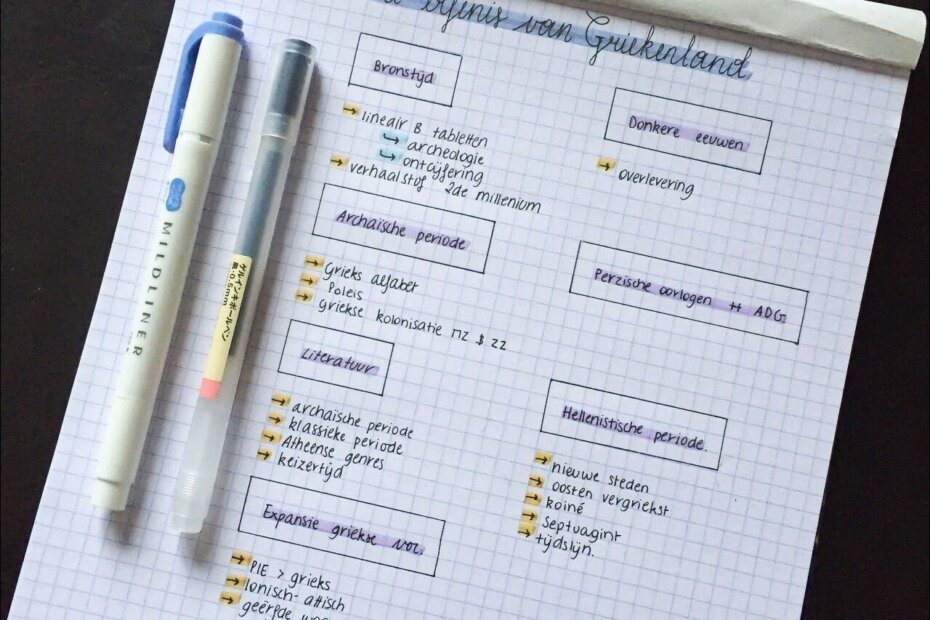 van Griekenland
Bronstijd
→ lineair B tabletten
↳ archeologie
↳ ontcijfering
→ verhaalstof 2de millenium
Archaïsche periode
→ Grieks alfabet
→ Poleis
→ griekse kolonisatie MZ & ZZ
Literatuur
→ archaïsche periode
→ klassieke periode
→ Atheense genres
→ keizertijd
Expansie griekse voc.
→ PIE > grieks
→ Ionisch-attisch
→ geërfde
Donkere eeuwen
→ overlevering
Perzische oorlogen ↔ ADG
Hellenistische periode.
→ nieuwe steden
→ oosten vergriekst
→ koinè
→ Septuagint
→ tijdslijn.
MILDLINER
ゲルインキボールペン
0.5mm